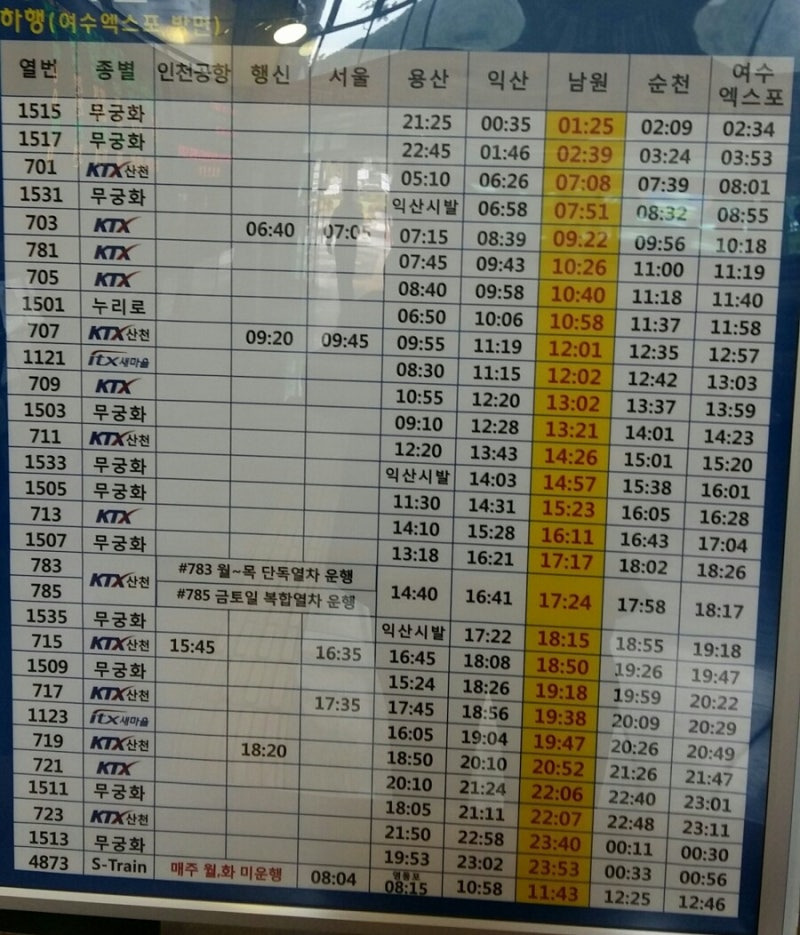 하행(여수엑스포 방면)
열번 종별 인천공항 행신 서울 용산 익산 남원 순천 여수엑스포
1515 무궁화 21:25 00:35 01:25 02:09 02:34
1517 무궁화 22:45 01:46 02:39 03:24 03:53
701 KTX산천 05:10 06:26 07:08 07:39 08:01
1531 무궁화 익산시발 06:58 07:51 08:32 08:55
703 KTX 06:40 07:05 07:15 08:39 09:22 09:56 10:18
781 KTX 07:45 09:43 10:26 11:00 11:19
705 KTX 08:40 09:58 10:40 11:18 11:40
1501 누리로 06:50 10:06 10:58 11:37 11:58
707 KTX산천 09:20 09:45 09:55 11:19 12:01 12:35 12:57
1121 itx새마을 08:30 11:15 12:02 12:42 13:03
709 KTX 10:55 12:20 13:02 13:37 13:59
1503 무궁화 09:10 12:28 13:21 14:01 14:23
711 KTX산천 12:20 13:43 14:26 15:01 15:20
1533 무궁화 익산시발 14:03 14:57 15:38 16:01
1505 무궁화 11:30 14:31 15:23 16:05 16:28
713 KTX 14:10 15:28 16:11 16:43 17:04
1507 무궁화 13:18 16:21 17:17 18:02 18:26
783 #783 월~목 단독열차 운행
785 KTX산천 #785 금토일 복합열차 운행 14:40 16:41 17:24 17:58 18:17
1535 무궁화 익산시발 17:22 18:15 18:55 19:18
715 KTX산천 15:45 16:35 16:45 18:08 18:50 19:26 19:47
1509 무궁화 15:24 18:26 19:18 19:59 20:22
717 KTX산천 17:35 17:45 18:56 19:38 20:09 20:29
1123 itx새마을 16:05 19:04 19:47 20:26 20:49
719 KTX산천 18:20 18:50 20:10 20:52 21:26 21:47
721 KTX 20:10 21:24 22:06 22:40 23:01
1511 무궁화 18:05 21:11 22:07 22:48 23:11
723 KTX산천 21:50 22:58 23:40 00:11 00:30
1513 무궁화 19:53 23:02 23:53 00:33 00:56
4873 S-Train 매주 월,화 미운행 08:04 영등포 08:15 10:58 11:43 12:25 12:46